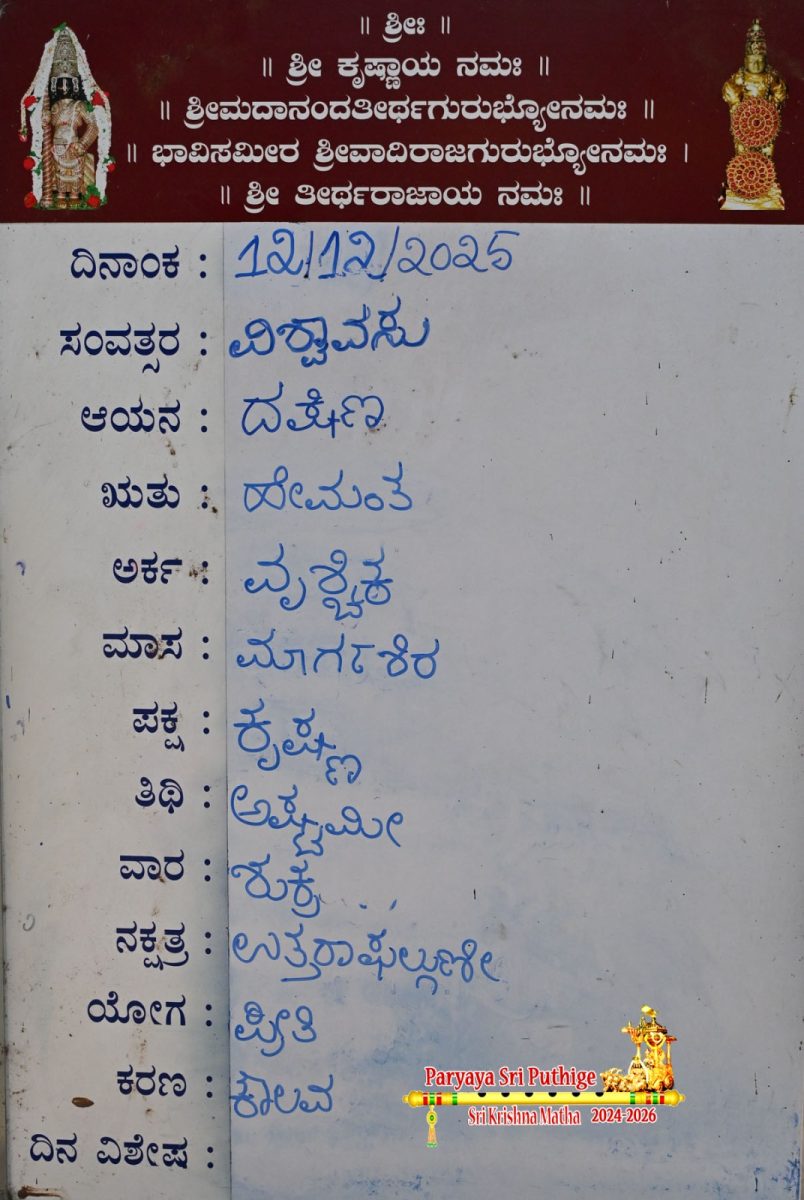 ॥ ಶ್ರೀಃ ॥
॥ ಶ್ರೀ ಕೃಷ್ಣಾಯ ನಮಃ ॥
॥ ಶ್ರೀಮದಾನಂದತೀರ್ಥಗುರುಭ್ಯೋನಮಃ ॥
॥ ಭಾವಿಸಮೀರ ಶ್ರೀವಾದಿರಾಜಗುರುಭ್ಯೋನಮಃ ।
॥ ಶ್ರೀ ತೀರ್ಥರಾಜಾಯ ನಮಃ ॥
ದಿನಾಂಕ : 12/12/2025
ಸಂವತ್ಸರ : ವಿಶ್ವಾವಸು
ಆಯನ : ದಕ್ಷಿಣ
ಋತು : ಹೇಮಂತ
ಅರ್ಕ : ವೃಶ್ಚಿಕ
ಮಾಸ : ಮಾರ್ಗಶಿರ
ಪಕ್ಷ : ಕೃಷ್ಣ
ತಿಥಿ : ಅಷ್ಟಮೀ
ವಾರ : ಶುಕ್ರ
ನಕ್ಷತ್ರ : ಉತ್ತರಾಫಲ್ಗುಣೀ
ಯೋಗ : ಪ್ರೀತಿ
ಕರಣ : ಕೌಲವ
ದಿನ ವಿಶೇಷ :
Paryaya Sri Puthige
Sri Krishna Matha 2024-2026